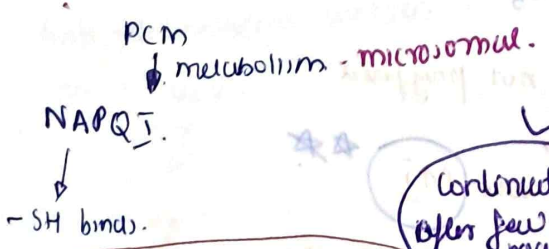 PCM
metabolism - microsomal.
NAPQI.
- SH binds.
continued
after few